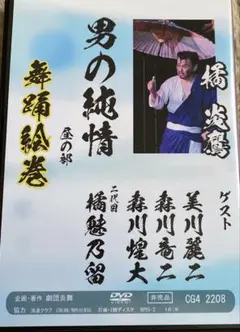 橘 炎鷹
男の純情
昼の部
舞踊絵巻
ゲスト
美川麗二
森川竜二
森川煌大
二代目
橘魅乃留
企画・著作 劇団炎舞
DVD
非売品
CG4 2208
協力